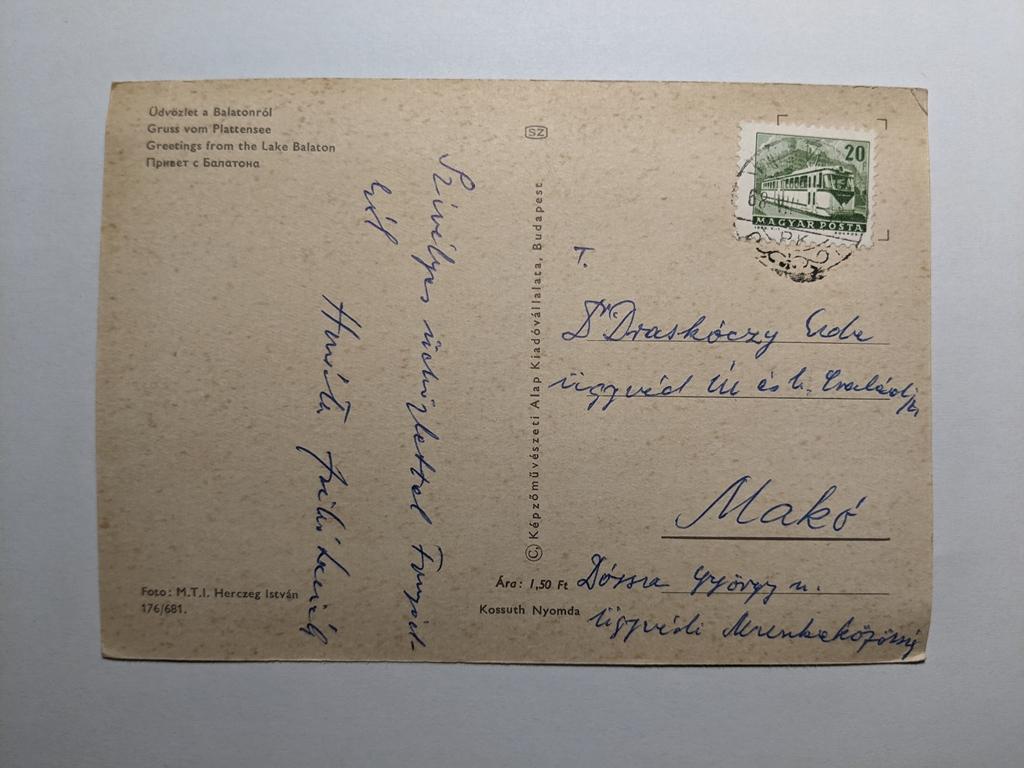 Üdvözlet a Balatonról
Gruss vom Plattensee
Greetings from the Lake Balaton
Привет с Балатона
SZ
20
MAGYAR POSTA
68
Szívélyes üdvözlettel
ről
T.
Dr Draskóczy Ede
ügyvéd Úr és b. Családja
Makó
Dózsa György u.
Ügyvédi Munkaközösség
© Képzőművészeti Alap Kiadóvállalata, Budapest
Ára: 1,50 Ft
Kossuth Nyomda
Foto: M.T.I. Herczeg István
176/681.